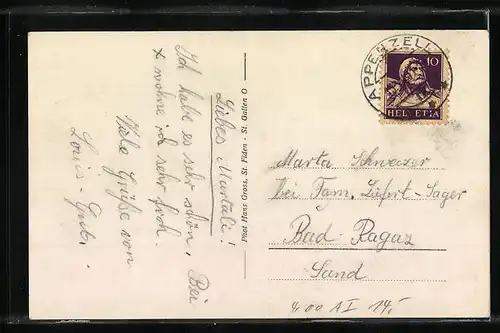 Liebes Martali!
Ich habe es sehr schön. Bei
wohne ich sehr froh.
Grüße von
Phot Hans Gross, St. Fiden - St. Gallen O
APPENZELL
10
HELVETIA
Marta Schweizer
bei Fam. Lüfort-Sager
Bad-Ragaz
Sand